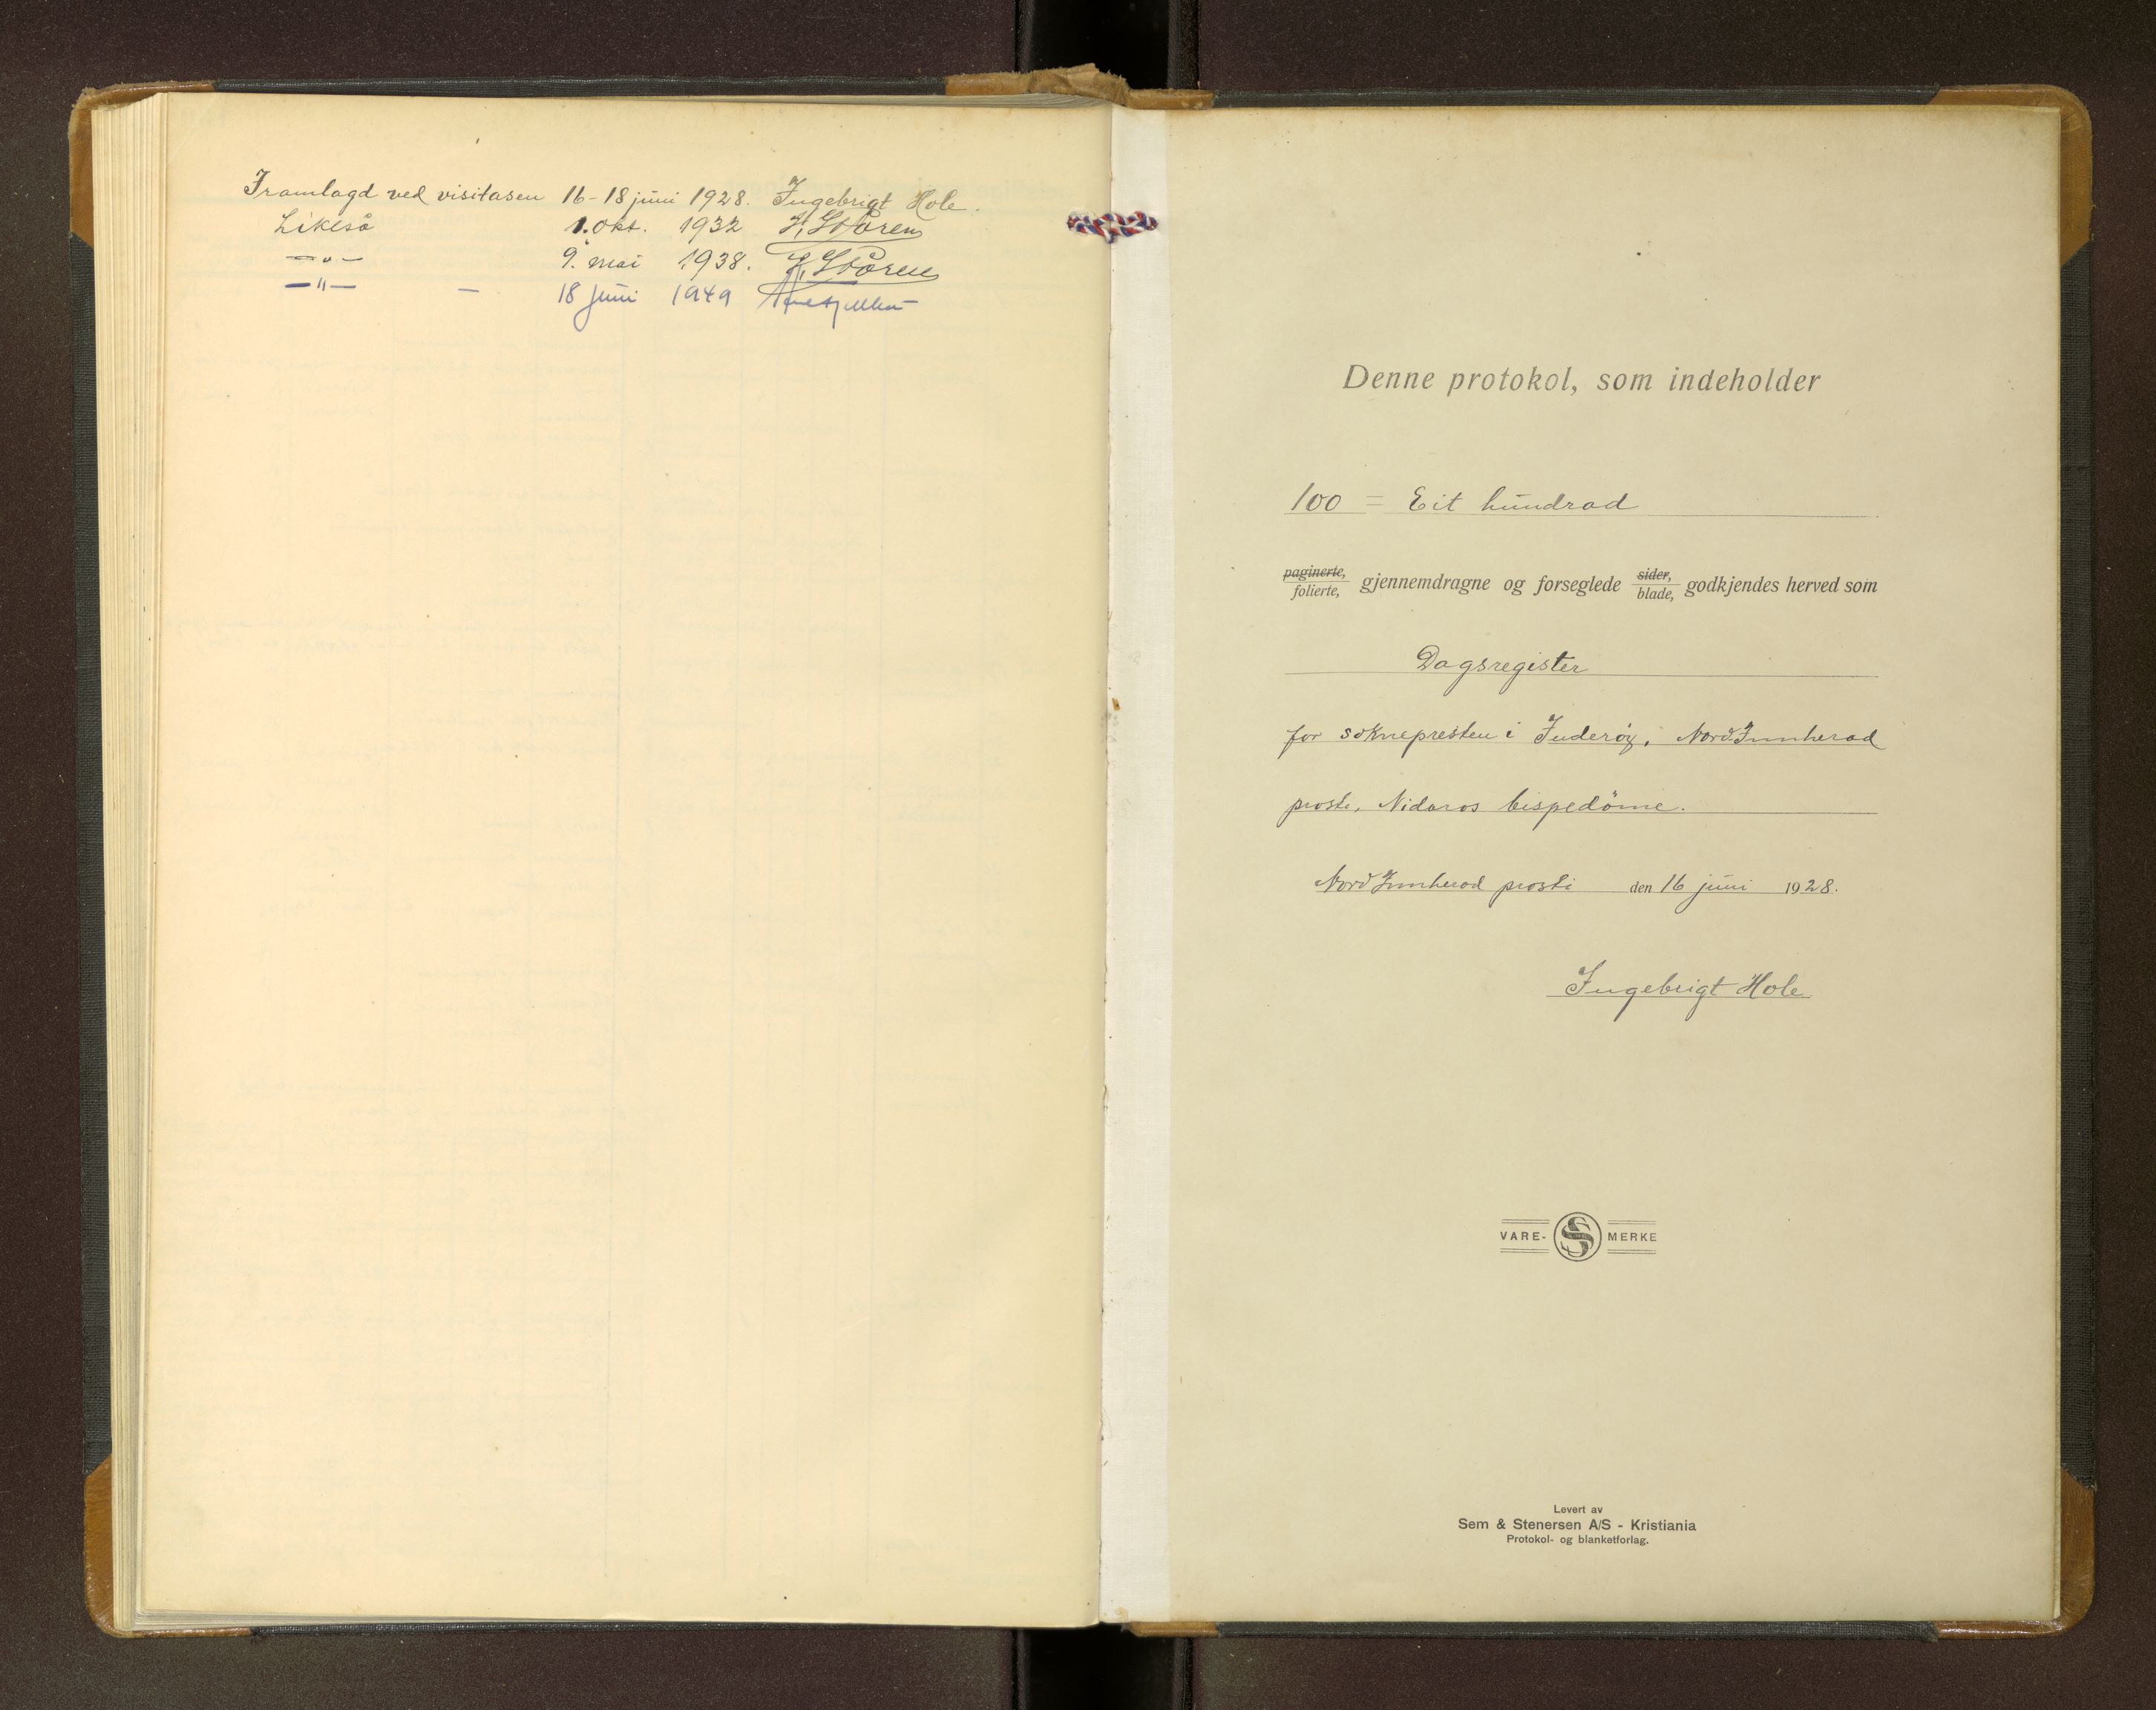 Framlagd ved visitasen 16-18 juni 1928. Ingebrigt Hole.
Likeså 1. okt. 1932 H. Støren
—„— 9. mai 1938. H. Støren
—"— — 18 juni 1949
Denne protokol, som indeholder
100 = Eit hundrad
paginerte,
folierte, gjennemdragne og forseglede sider,
blade, godkjendes herved som
Dagsregister
for soknepresten i Inderöy, Nord-Innherad
prosti, Nidaros bispedöme.
Nord Innherad prosti den 16 juni 1928.
Ingebrigt Hole
VARE- S MERKE
Levert av
Sem & Stenersen A/S - Kristiania
Protokol- og blanketforlag.